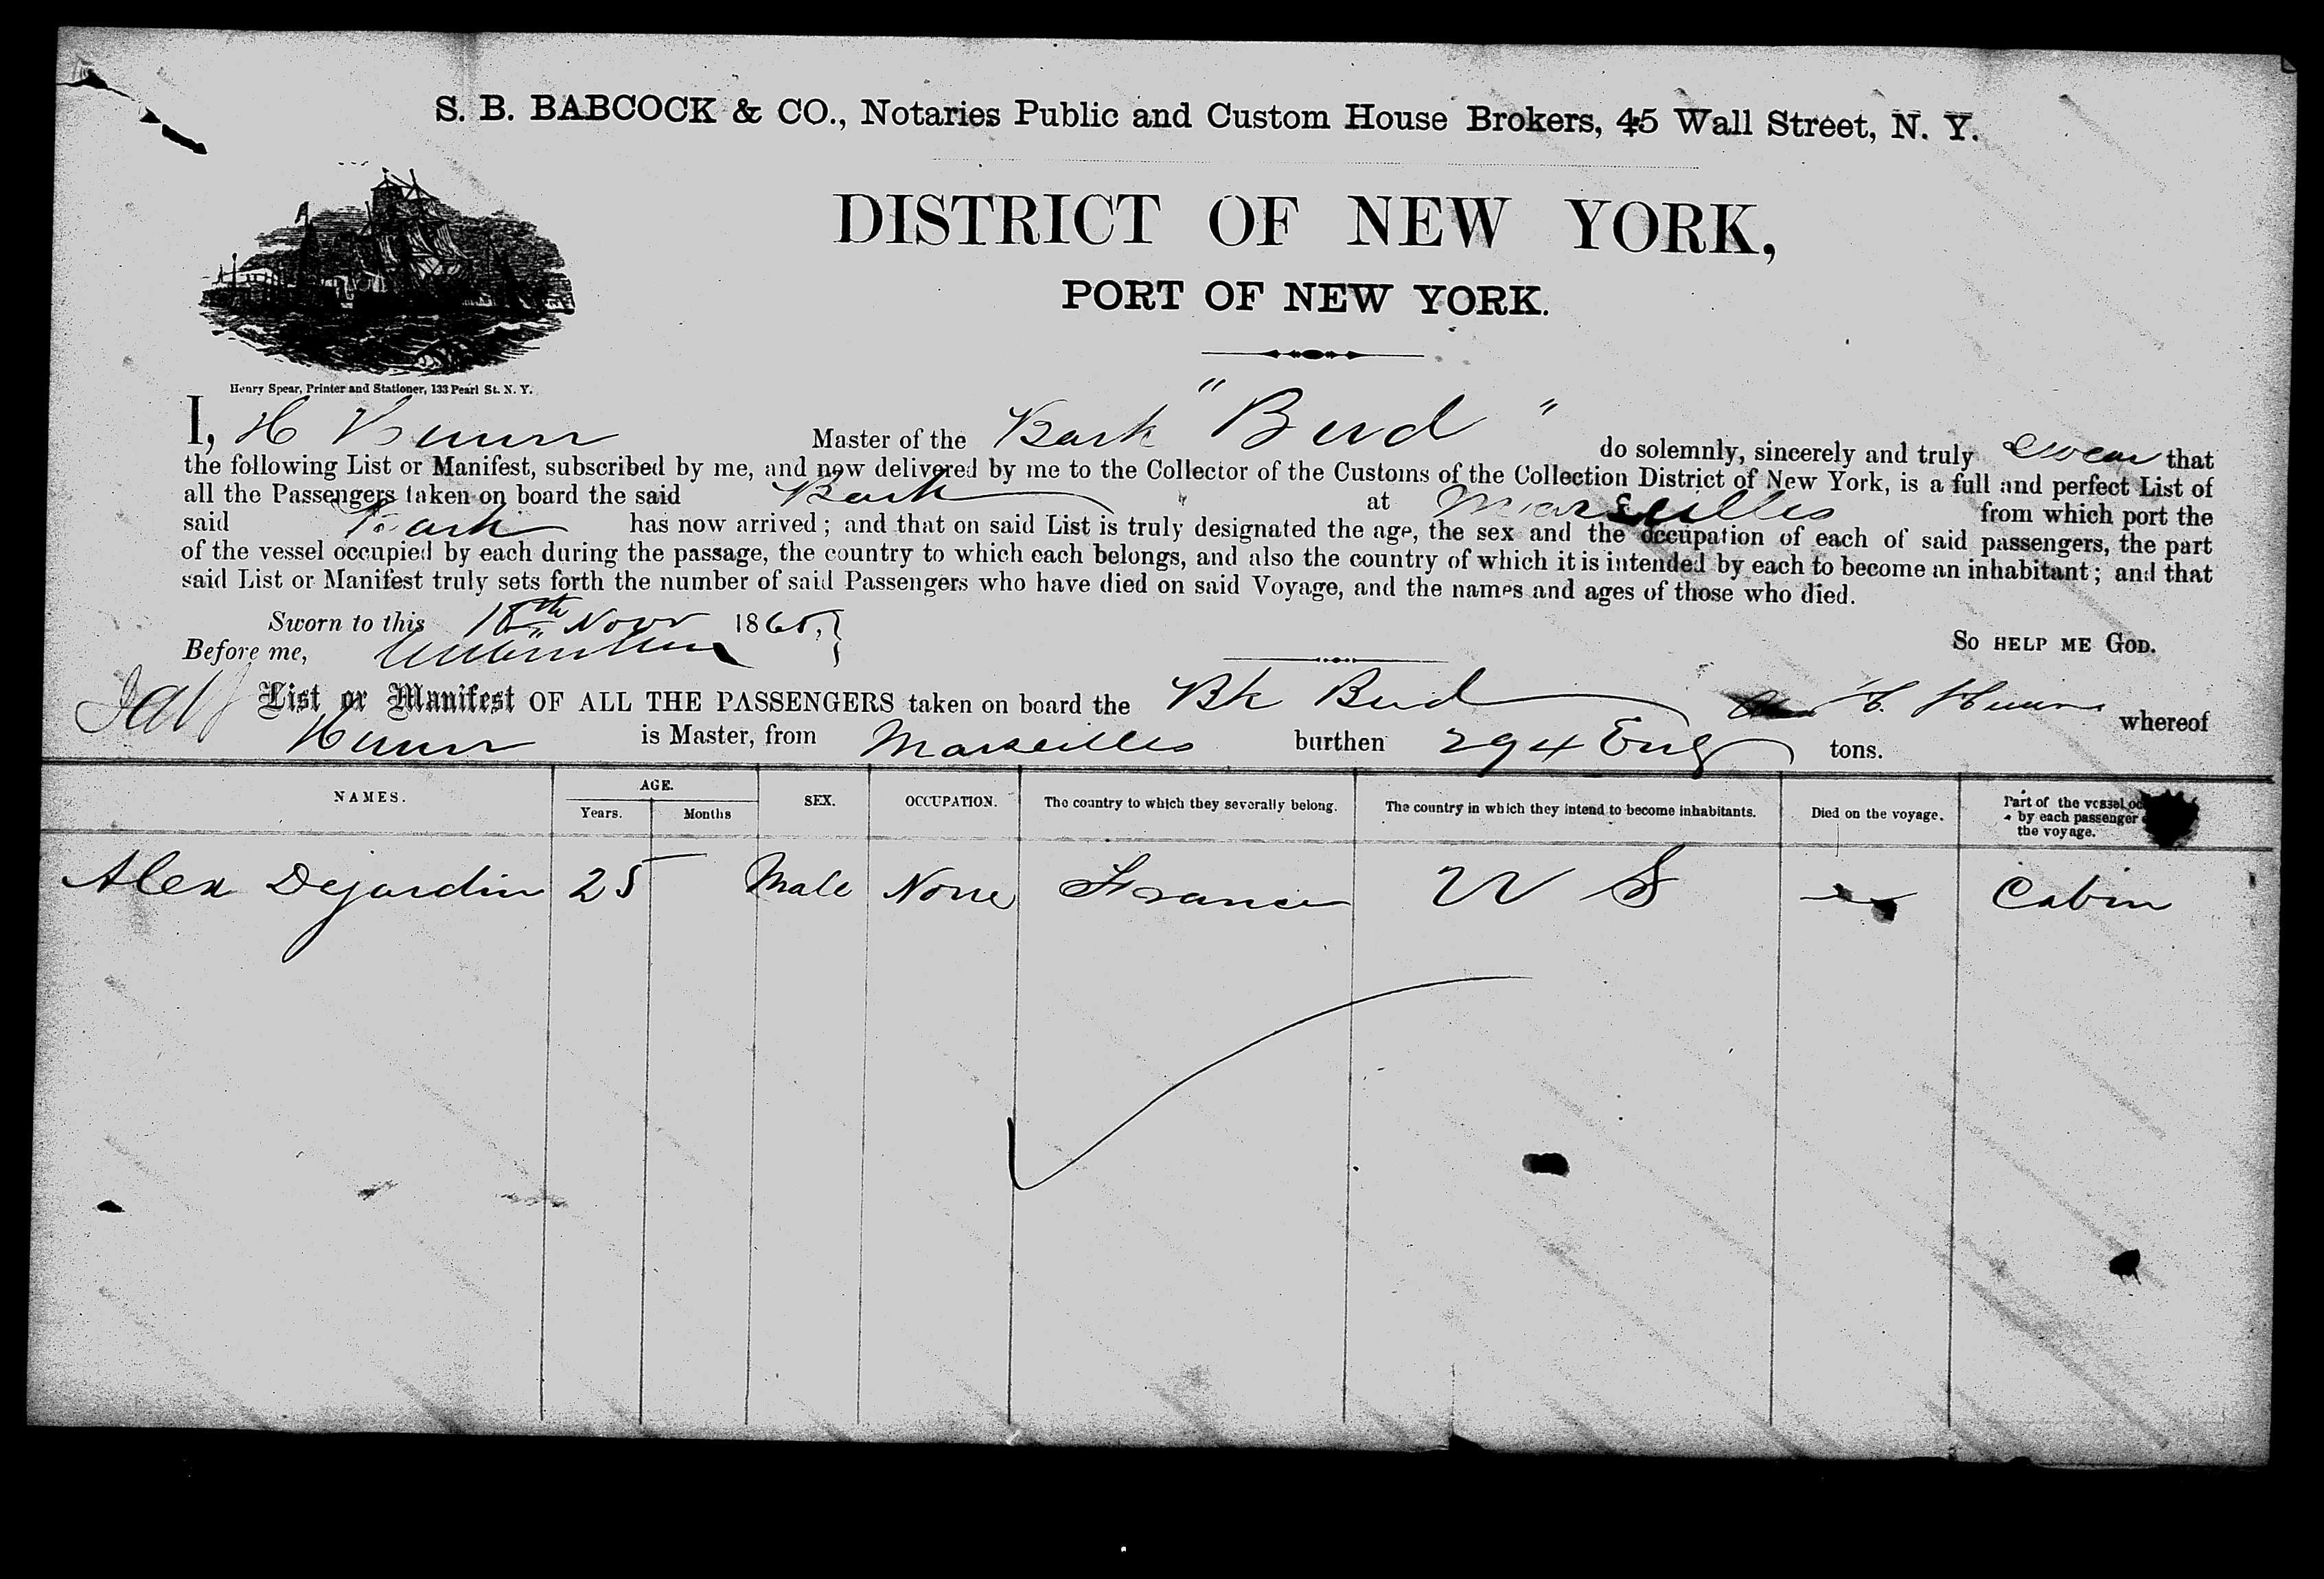 S. B. BABCOCK & CO., Notaries Public and Custom House Brokers, 45 Wall Street, N. Y.
DISTRICT OF NEW YORK,
PORT OF NEW YORK.
Henry Spear, Printer and Stationer, 133 Pearl St. N. Y.
I, H Master of the Bark " " do solemnly, sincerely and truly swear that
the following List or Manifest, subscribed by me, and now delivered by me to the Collector of the Customs of the Collection District of New York, is a full and perfect List of
all the Passengers taken on board the said Bark at Marseilles from which port the
said Bark has now arrived; and that on said List is truly designated the age, the sex and the occupation of each of said passengers, the part
of the vessel occupied by each during the passage, the country to which each belongs, and also the country of which it is intended by each to become an inhabitant; and that
said List or Manifest truly sets forth the number of said Passengers who have died on said Voyage, and the names and ages of those who died.
Sworn to this Novr 1865,
Before me, SO HELP ME GOD.
List or Manifest OF ALL THE PASSENGERS taken on board the Bk whereof
is Master, from Marseilles burthen 294 tons.
NAMES. AGE. Years. Months SEX. OCCUPATION. The country to which they severally belong. The country in which they intend to become inhabitants. Died on the voyage. Part of the vessel by each passenger the voyage.
Alex Dejardin 25 Male None France U S Cabin